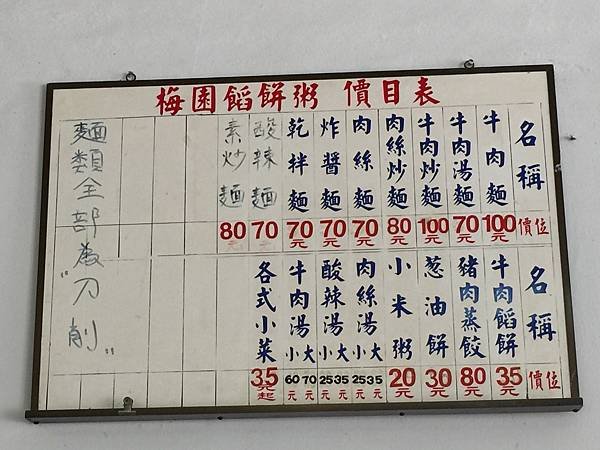 梅園餡餅粥 價目表
名稱 價位
牛肉麵 100元
牛肉湯麵 70元
牛肉炒麵 100元
肉絲炒麵 80元
肉絲麵 70元
炸醬麵 70元
乾拌麵 70元
酸辣麵 70
素炒麵 80
名稱 價位
牛肉餡餅 35元
豬肉蒸餃 80元
葱油餅 30元
小米粥 20元
肉絲湯 大 35元 小 25元
酸辣湯 大 35元 小 25元
牛肉湯 大 70元 小 60元
各式小菜 35元起
麵類全部為"刀削"